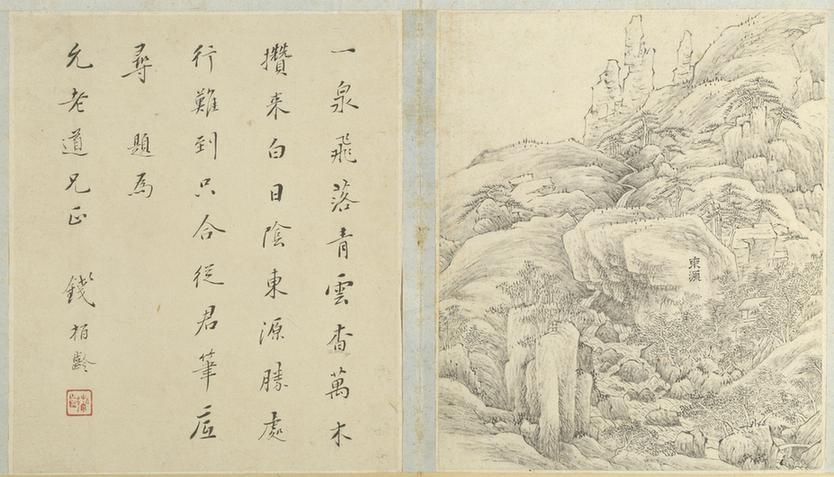 一泉飛落青雲杳萬木
攢來白日陰東源勝處
行難到只合從君筆底
尋題為
允老道兄正 錢柏齡
東源